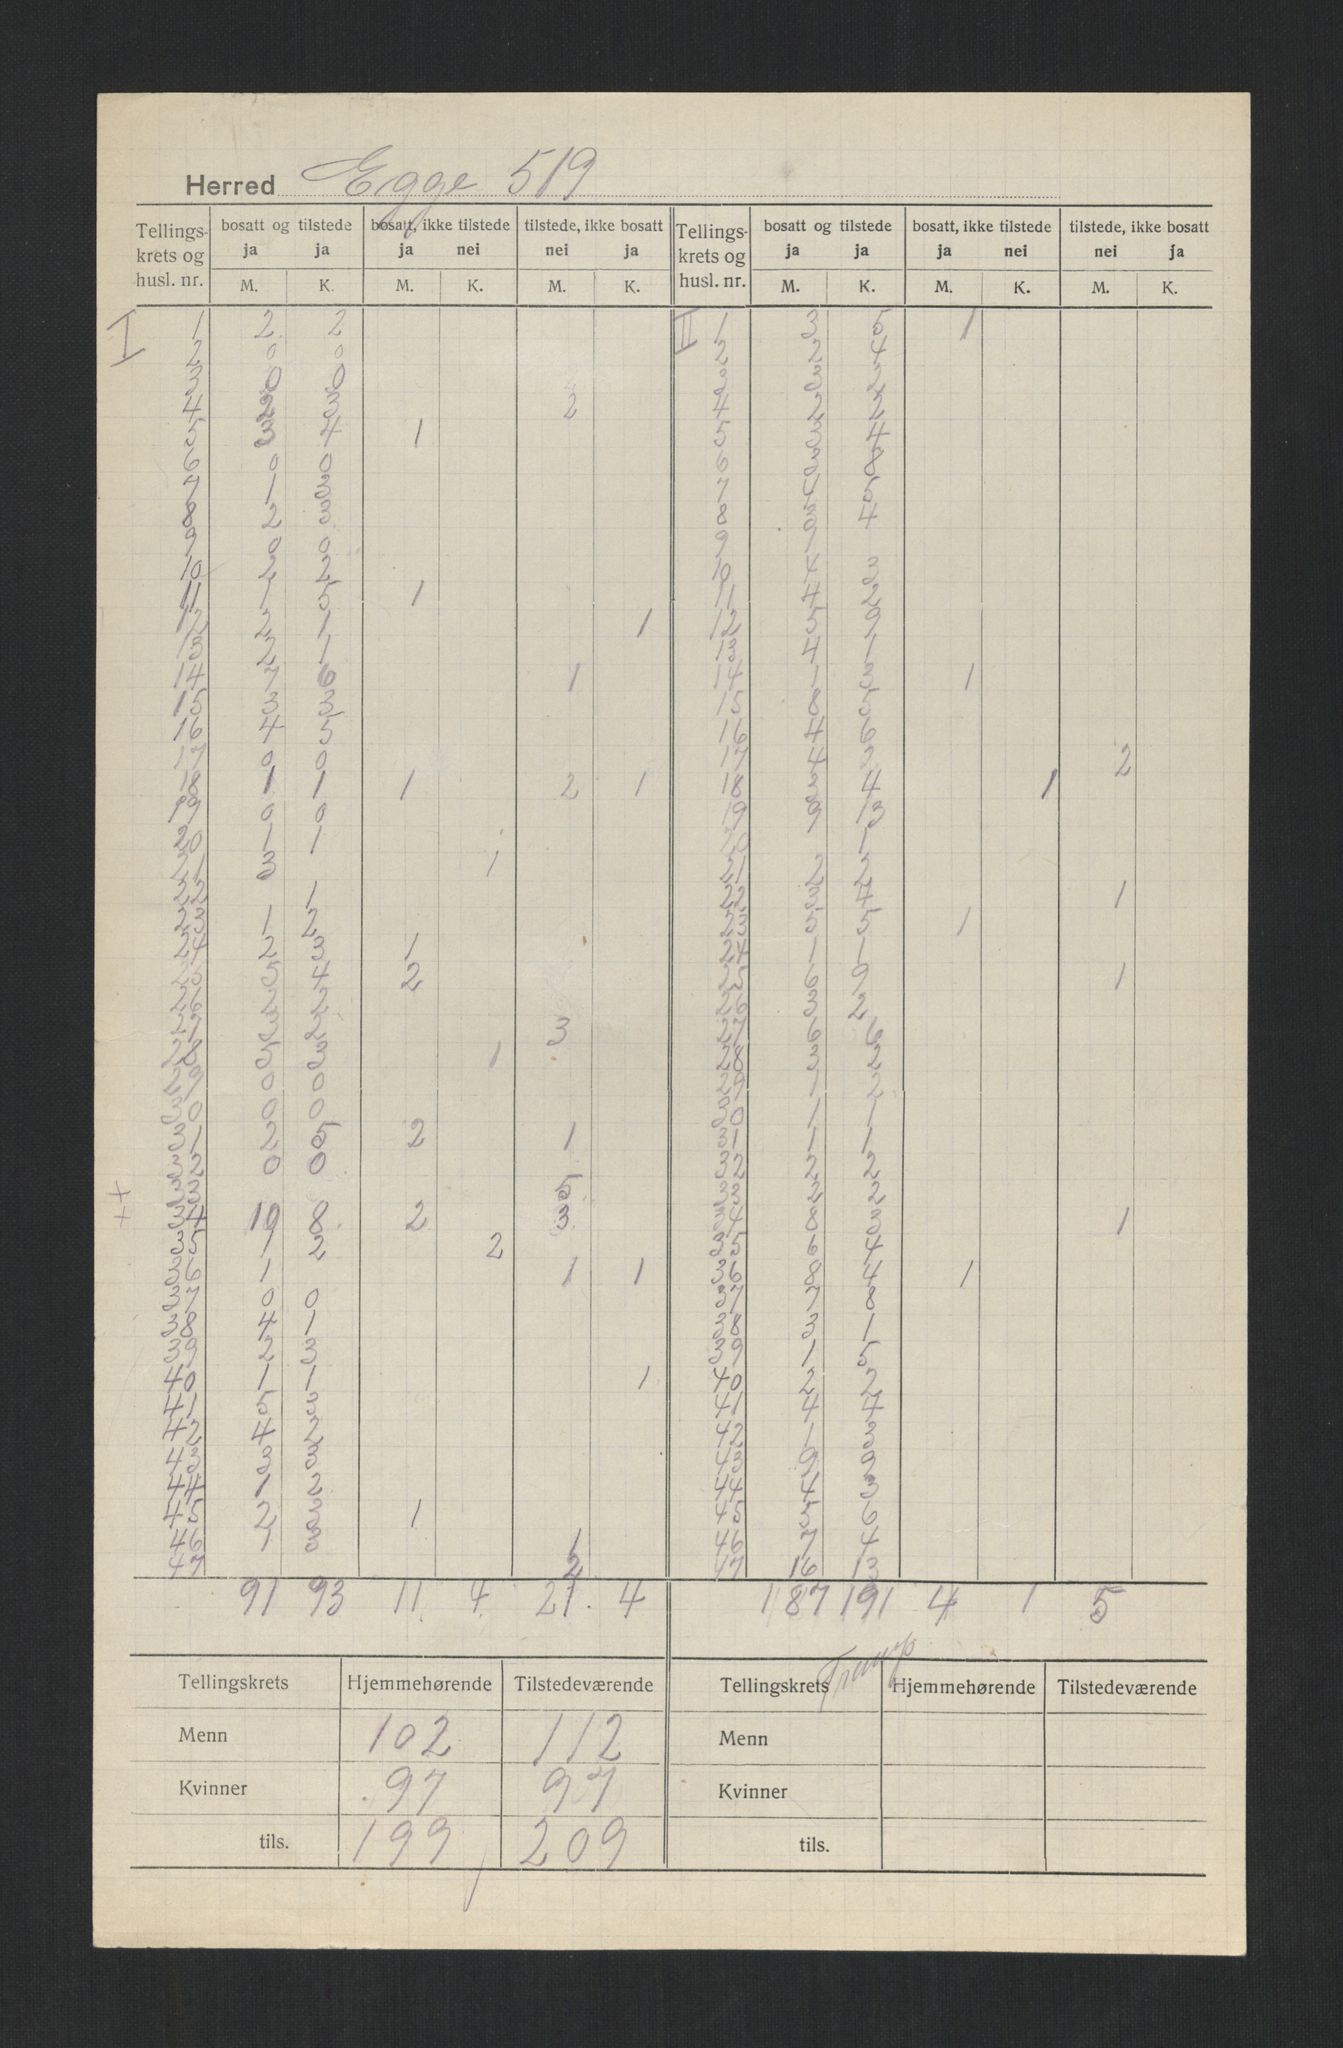 Herred Egge 519
Tellingskrets og husl. nr. | bosatt og tilstede ja ja | bosatt, ikke tilstede ja nei | tilstede, ikke bosatt nei ja | Tellingskrets og husl. nr. | bosatt og tilstede ja ja | bosatt, ikke tilstede ja nei | tilstede, ikke bosatt nei ja
M. K. M. K. M. K. M. K. M. K. M. K.
I 1 2 2 II 1 3 5 1
2 0 0 2 4
3 0 0 3
4 2 4
5 4 1 5 4
6 0 0 6 8
7 1 7
8 2 8 4
9 0 0 9
10 2 2 10 4
11 1 5 1 11 4 2
12 2 1 1 12 5 9
13 2 1 13 4 1
14 7 6 1 14 1 3 1
15 3 3 15 8 5
16 4 5 16 4 6
17 0 0 17 4 2 2
18 1 1 1 2 1 18 3 4 1
19 0 0 19 9 13
20 1 1 20 1
21 3 1 21 2 2
22 1 22 4 1
23 1 2 23 5 1
24 2 3 1 24 1 1
25 5 4 2 25 6 9 1
26 26 3 2
27 3 27 6 6
28 1 28 3 2
29 0 0 29 1 2
30 0 0 30 1 1
31 2 5 2 1 31 1 1
32 0 0 32 2 2
33 5 33 2 2
34 10 8 2 3 34 8 3 1
35 1 2 2 35 6 4
36 1 1 1 36 8 4 1
37 0 0 37 7 8
38 4 1 38 3 1
39 2 3 39 1 5
40 1 1 1 40 2 2
41 5 3 41 4 7
42 4 2 42 1 3
43 3 3 43 9 2
44 1 2 44 4 3
45 2 3 1 45 5 6
46 1 3 1 46 7 4
47 2 47 16 13
91 93 11 4 21 4 187 191 4 1 5
Tellingskrets Hjemmehørende Tilstedeværende Tellingskrets Hjemmehørende Tilstedeværende
Menn 102 112 Menn
Kvinner 97 97 Kvinner
tils. 199 209 tils.